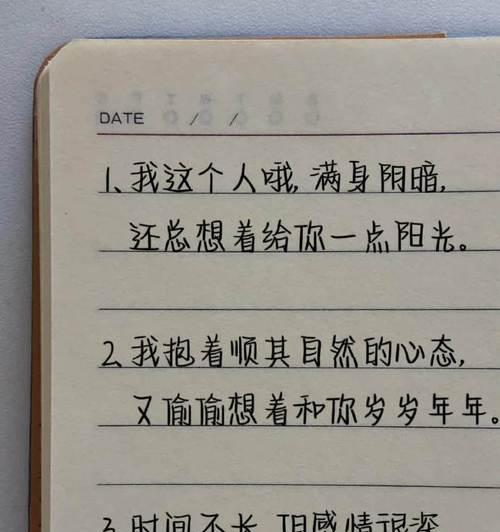 DATE / /
1、我这个人哦,满身阴暗,
还总想着给你一点阳光。
2、我抱着顺其自然的心态,
又偷偷想着和你岁岁年年。
3、时间不长,但感情很深